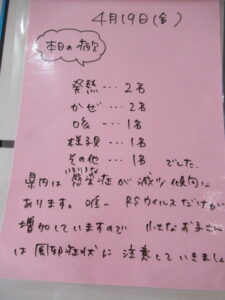 4月19日(金)
本日の病欠
発熱…2名
かぜ…2名
咳…1名
様子見…1名
その他…1名 でした.
県内は感染症が減少傾向に
あります。唯一 RSウイルスだけが
増加していますので 小さなお子さん
は 症状に注意していきましょ